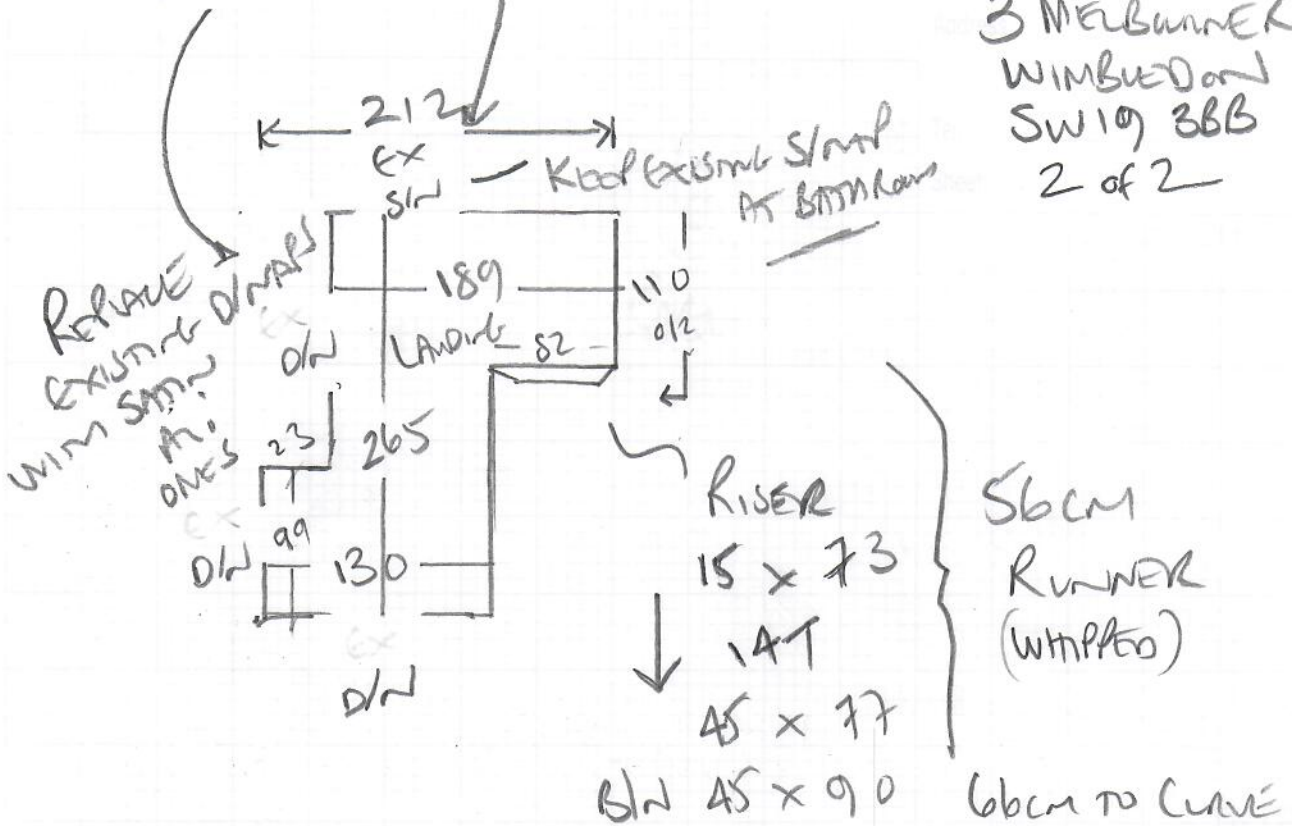 3 MELBOURNE
WIMBLEDON
SW19 3BB
2 of 2
212
EX
S/N
KEEP EXISTING S/NAP
AT BATHROOM
REPLACE
EXISTING D/NAPS
WITH SATIN
ONES
189
110
O/2
D/N
LANDING
82
23
265
99
D/N
130
EX
D/N
RISER
15 x 73
14T
45 x 77
B/N 45 x 90
56CM
RUNNER
(WHIPPED)
66CM TO CURVE